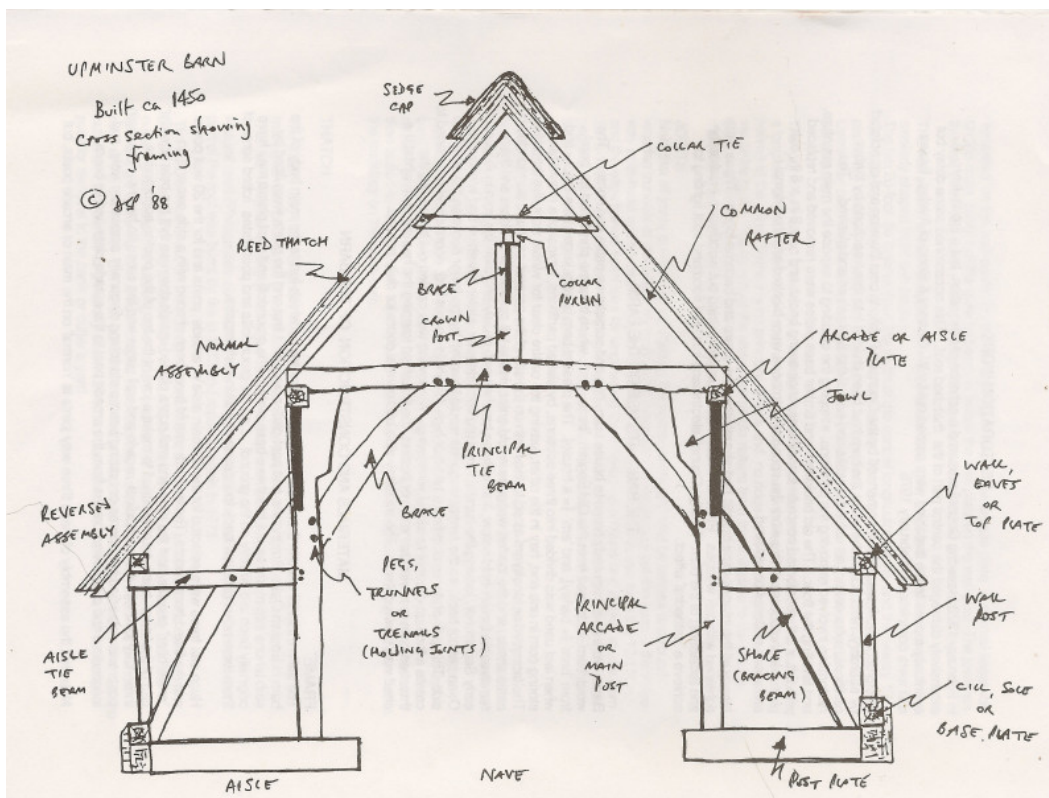 UPMINSTER BARN
Built ca 1450
Cross section showing
framing
© '88
SEDGE
CAP
COLLAR TIE
COMMON
RAFTER
REED THATCH
BRACE
COLLAR
PURLIN
CROWN
POST
NORMAL
ASSEMBLY
ARCADE OR AISLE
PLATE
JOWL
PRINCIPAL
TIE
BEAM
WALL,
EAVES
OR
TOP PLATE
REVERSED
ASSEMBLY
BRACE
PEGS,
TRUNNELS
OR
TRENAILS
(HOLDING JOINTS)
PRINCIPAL
ARCADE
OR
MAIN
POST
WALL
POST
AISLE
TIE
BEAM
SHORE
(BRACING
BEAM)
CILL, SOLE
OR
BASE PLATE
AISLE
NAVE
POST PLATE